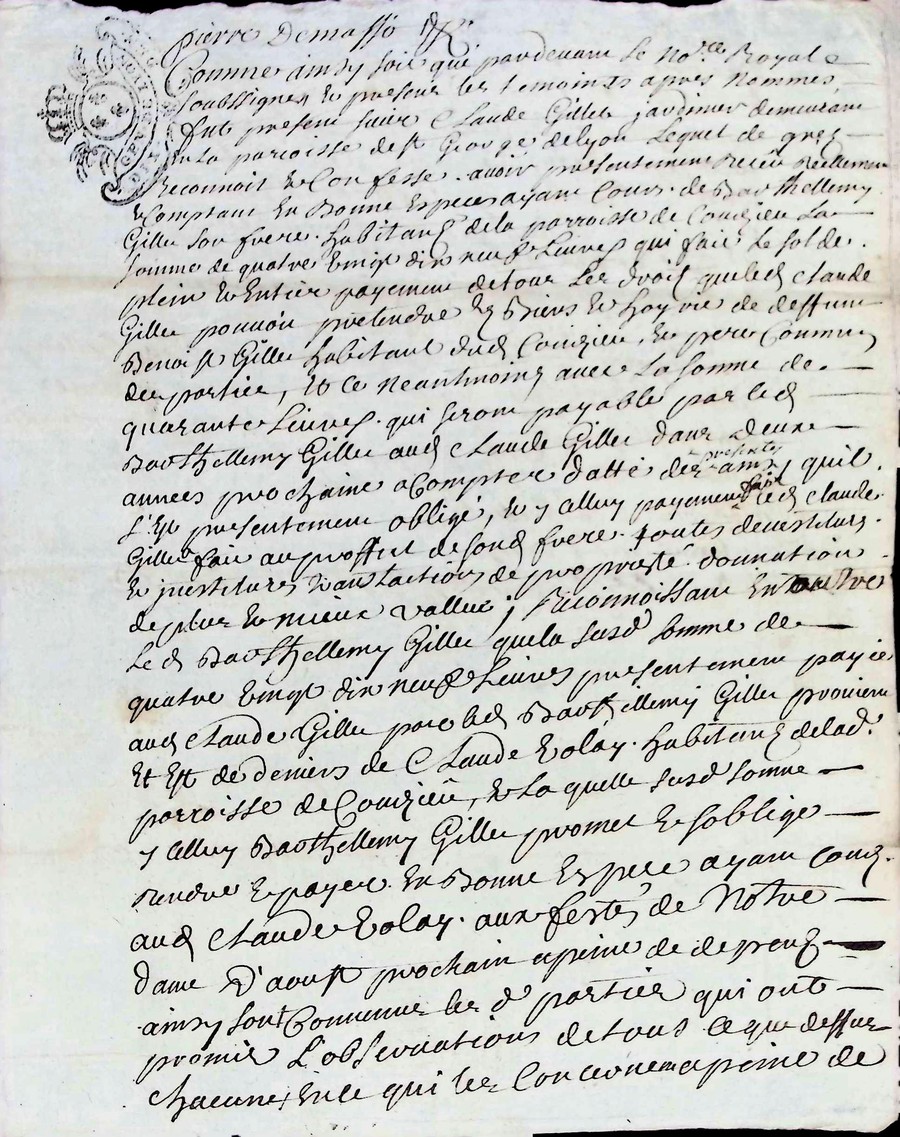 pierre Demasso
Comme ainsy soit que pardevant Le No.re Royal
soubssigner et presens les temoints apres Nommes
fut present sieur Claude Gillet jardinier demeurant
en La paroisse de st George de Lyon Lequel de gres
Reconnoit et Confesse avoir presentement Receu Reellement
et Comptant En Bonne Especes ayant Cours de Barthellemy
Gille son frere habitant de la parroisse de Couzieu La
somme de quatre vingt dix neuf Livres qui fait Le solde
plein et Entier payement de tous Les droit que led Claude
Gille pouvoit pretendre Es Biens et hoyrie de deffunt
Benoist Gille habitant dud Couzieu, Leur pere Commun
des partier, Et ce Neantmoins avec La somme de
quarante Livres qui seront payable par led
Barthellemy Gille aud Claude Gille dans deux
annees prochaine a Compter datte des presentes ainsy quil
s'Est presentement obligé, et y celluy payement fait led Claude
Gille fait au proffit de sond frere toutes devestitures
Et jnvestitures translactions de proprieté donnation
de plus et mieux valluë ; Reconnoissant En outre
Le d Barthellemy Gille que la susd somme de
quatre vingt dix neuf Livres presentement payée
aud Claude Gille par led Barthellemy Gille provient
Et Est de deniers de Claude Volay habitant de lad.
parroisse de Couzieu, et La quelle susd somme
y celluy Barthellemy Gille promet et soblige
Rendre et payer En Bonne Espece ayant Cours
aud Claude Volay aux festes de Notre
dame D'aoust prochain a peine de depens
ainsy sont Convenus les d partier qui ont
promis L'observations de tous ce que dessus
Chacune En ce qui les Concernent a peine de